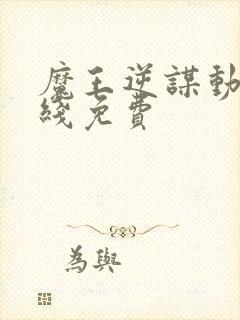 魔王逆謀動
綫免費
為與